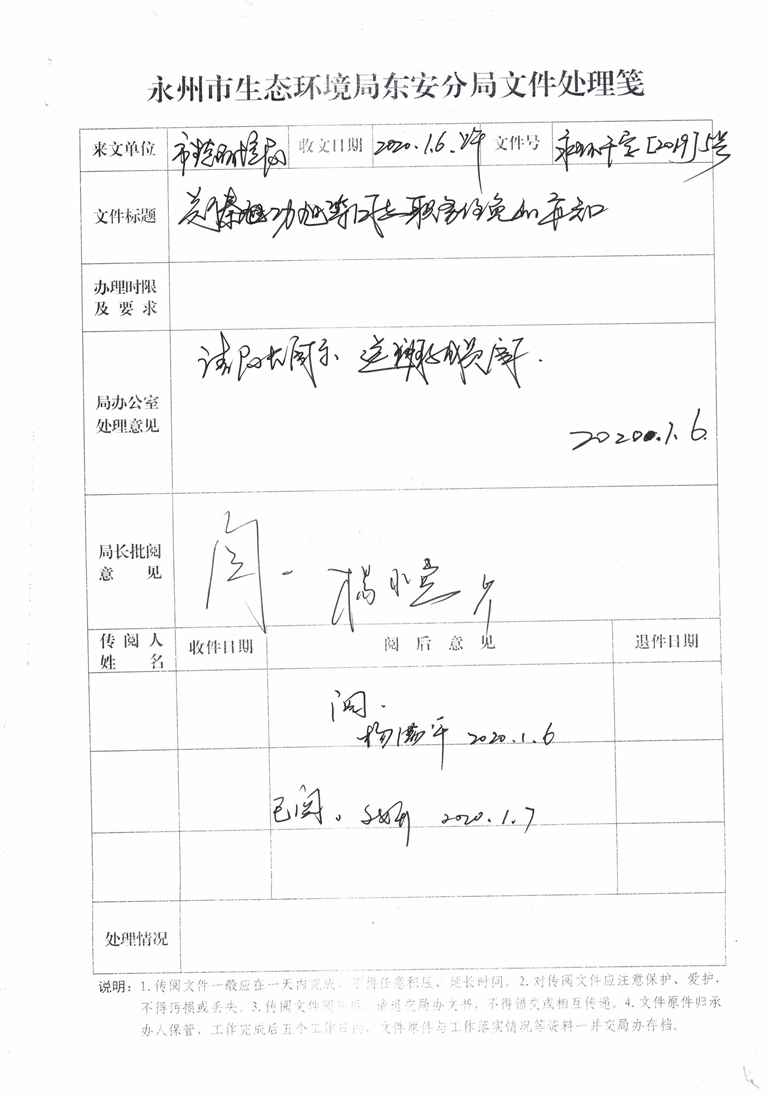 永州市生态环境局东安分局文件处理笺
来文单位 市生态环境局 收文日期 2020.1.6. 文件号 永环干字[2019]5号
文件标题 同志职务任免的通知
办理时限
及要求
请 局长阅示 送 班子成员阅
局办公室
处理意见
2020.1.6.
局长批阅
意 见
阅
传阅人
姓 名
收件日期 阅后意见 退件日期
阅.
2020.1.6
已阅。 2020.1.7
处理情况
说明：1.传阅文件一般应在一天内完成，不得任意积压、延长时间。2.对传阅文件应注意保护、爱护，
不得污损或丢失。3.传阅文件阅毕后，请退交局办文书，不得错交或相互传递。4.文件原件归承
办人保管，工作完成后五个工作日内，文件原件与工作落实情况等资料一并交局办存档。